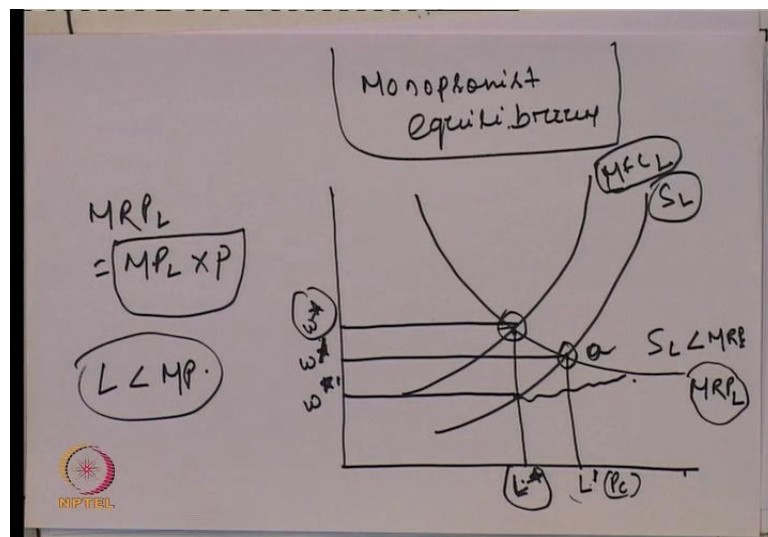 Monopsonist
equilibrium
MFC_L
S_L
MRP_L
= MP_L × P
L < MP.
w*
w*
w*'
a
S_L < MRP
MRP_L
L*
L' (Pc)
NPTEL